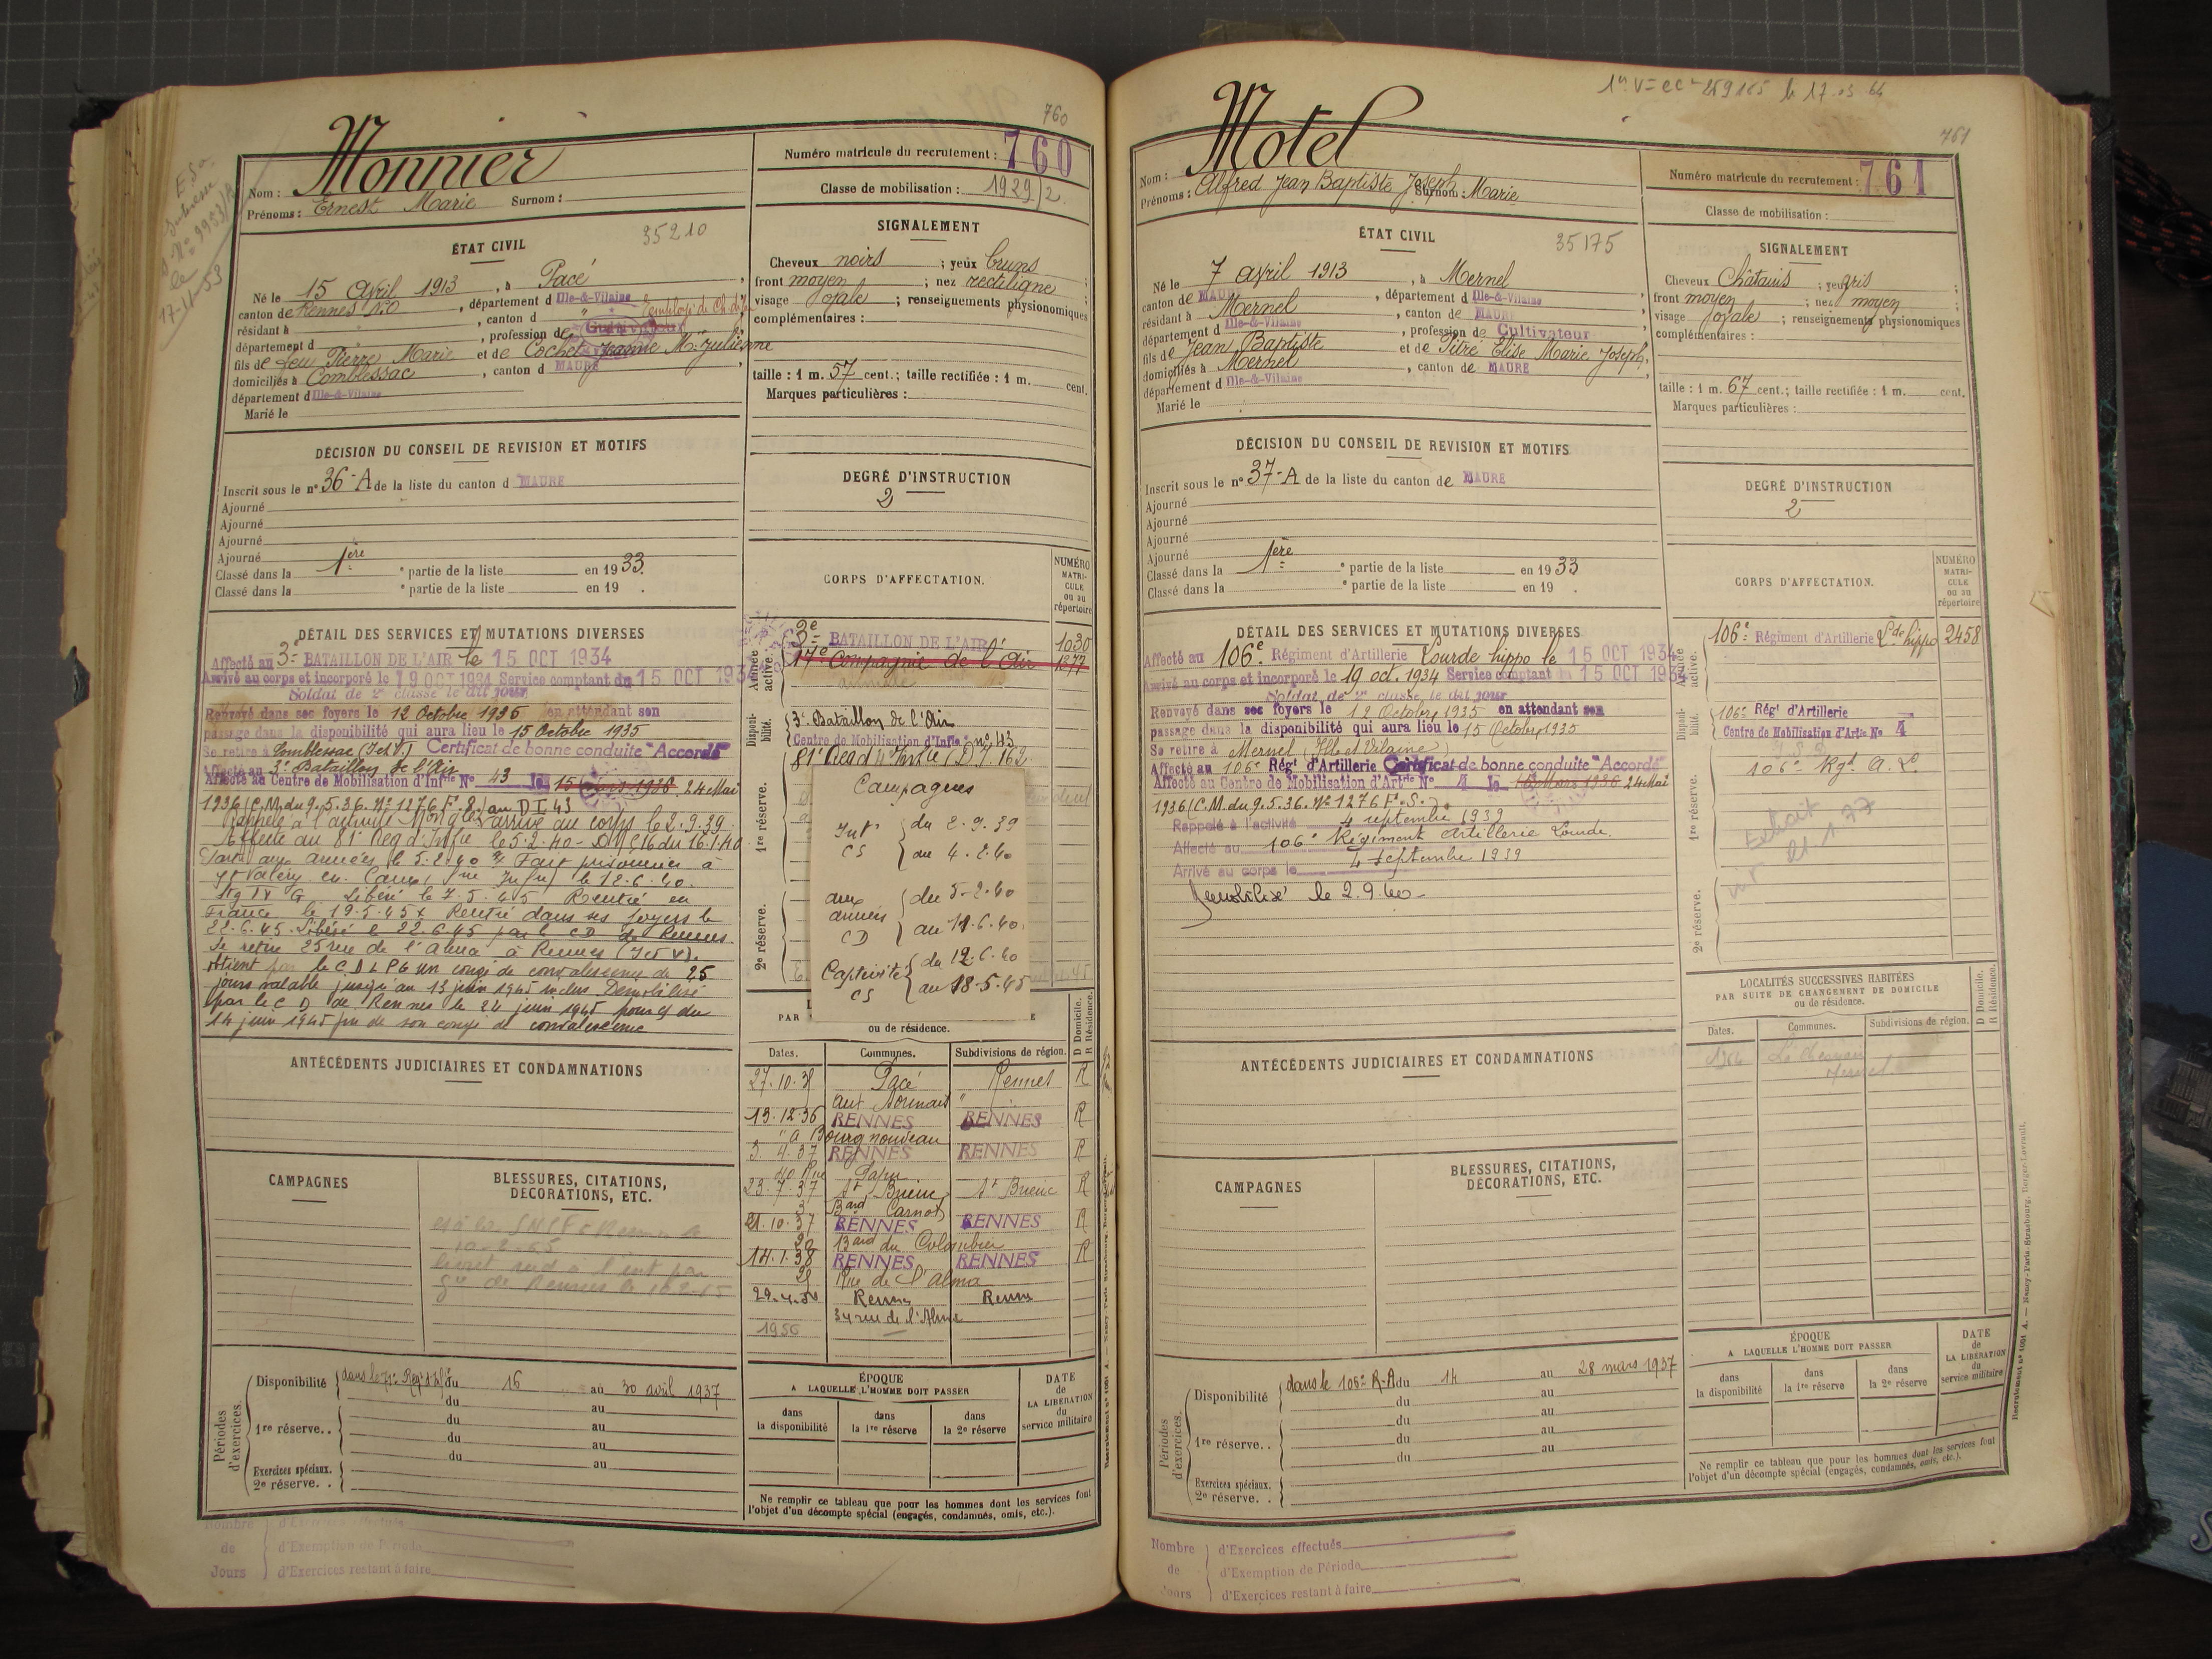 E. So.
N° 9953/R
le
17-11-53
760
Monnier
Nom :
Prénoms : Ernest Marie Surnom :
Numéro matricule du recrutement : 760
Classe de mobilisation : 1929/2.
ÉTAT CIVIL
35210
Né le 15 Avril 1913, à Pacé,
canton de Rennes N.O, département d Ille-&-Vilaine
résidant à " , canton d "
département d " , profession de Cultivateur
fils de feu Pierre Marie et de Cochet Jeanne M. Julienne
domiciliés à Comblessac, canton d MAURE,
département d Ille-&-Vilaine
Marié le
SIGNALEMENT
Cheveux noirs ; yeux bruns ;
front moyen ; nez rectiligne ;
visage ovale ; renseignements physionomiques
complémentaires :
taille : 1 m. 57 cent.; taille rectifiée : 1 m. cent.
Marques particulières :
DÉCISION DU CONSEIL DE REVISION ET MOTIFS
Inscrit sous le n° 36-A de la liste du canton d MAURE
Ajourné
Ajourné
Ajourné
Ajourné
Classé dans la 1ère ° partie de la liste en 1933.
Classé dans la ° partie de la liste en 19 .
DEGRÉ D'INSTRUCTION
2
CORPS D'AFFECTATION.
NUMÉRO
MATRI-
CULE
ou au
répertoire
Armée active.
3e BATAILLON DE L'AIR 1030
17e Compagnie de l'Air 1877
Disponibilité.
3e Bataillon de l'Air
Centre de Mobilisation d'Inf.ie n° 43
1re réserve.
2e réserve.
Campagnes
Intr CS { du 2.9.39
au 4.2.40
aux armées CD { du 5-2-40
au 11.6.40.
Captivité CS { du 12.6.40
au 18-5-45
DÉTAIL DES SERVICES ET MUTATIONS DIVERSES
Affecté au 3e BATAILLON DE L'AIR le 15 OCT 1934
Arrivé au corps et incorporé le 19 OCT 1934 Service comptant du 15 OCT 1934
Soldat de 2e classe le dit jour
Renvoyé dans ses foyers le 12 Octobre 1935 en attendant son
passage dans la disponibilité qui aura lieu le 15 Octobre 1935
Se retire à Comblessac (I et V.) Certificat de bonne conduite "Accordé"
Affecté au 3e Bataillon de l'Air
Affecté au Centre de Mobilisation d'Infrie N° 43 le 15 Mars 1936. 24 Mai
1936 (C.M. du 9.5.36. N° 1276 F.S.) au D I 43
Rappelé à l'activité arrivé au corps le 2.9.39
Affecté au 81e Reg d'Infie le 5.2.40
Parti aux armées le 5.2.40 Fait prisonnier à
St Valéry en Caux (Sne Infre) le 12.6.40.
Stg IV G Libéré le 7.5.45 Rentré en
France le 19.5.45 Rentré dans ses foyers le
22.6.45. Libéré le 22.6.45 par le CD de Rennes.
Se retire 25 rue de l'Alma à Rennes (I et V).
obtient par le C.D L P G un congé de convalescence de 25
jours valable jusqu'au 13 juin 1945 inclus. Démobilisé
par le C D de Rennes le 24 juin 1945
14 juin 1945 fin de son congé de convalescence
ANTÉCÉDENTS JUDICIAIRES ET CONDAMNATIONS
PAR
ou de résidence.
D Domicile.
R Résidence.
Dates. Communes. Subdivisions de région.
27.10.35 Pacé Rennes R
13.12.36 RENNES RENNES R
Bourg nouveau
3.4.37 RENNES RENNES R
40 Rue Papu
23.7.37 St Brieuc St Brieuc R
3 Bard Carnot
21.10.37 RENNES RENNES R
20 Bard du Colombier
14.1.38 RENNES RENNES R
25 Rue de l'Alma
29.4.50 Rennes Rennes
34 rue de l'Alma
1956
CAMPAGNES
BLESSURES, CITATIONS,
DÉCORATIONS, ETC.
Périodes d'exercices.
Disponibilité du 16 au 30 avril 1937
du au
1re réserve.. du au
du au
du au
Exercices spéciaux.
2e réserve. .
ÉPOQUE
A LAQUELLE L'HOMME DOIT PASSER
DATE
de
LA LIBÉRATION
du
service militaire
dans la disponibilité
dans la 1re réserve
dans la 2e réserve
Ne remplir ce tableau que pour les hommes dont les services font
l'objet d'un décompte spécial (engagés, condamnés, omis, etc.).
Nombre de Jours
d'Exercices effectués
d'Exemption de Période
d'Exercices restant à faire
761
Motel
Nom :
Prénoms : Alfred Jean Baptiste Joseph Surnom : Marie
Numéro matricule du recrutement : 761
Classe de mobilisation :
ÉTAT CIVIL
35175
Né le 7 avril 1913, à Mernel,
canton de MAURE, département d Ille-&-Vilaine
résidant à Mernel, canton de MAURE
département d Ille-&-Vilaine, profession de Cultivateur
fils de Jean Baptiste et de Pitré Elise Marie Joseph,
domiciliés à Mernel, canton de MAURE,
département d Ille-&-Vilaine
Marié le
SIGNALEMENT
Cheveux Châtains ; yeux gris ;
front moyen ; nez moyen ;
visage ovale ; renseignements physionomiques
complémentaires :
taille : 1 m. 67 cent.; taille rectifiée : 1 m. cent.
Marques particulières :
DÉCISION DU CONSEIL DE REVISION ET MOTIFS
Inscrit sous le n° 37-A de la liste du canton de MAURE
Ajourné
Ajourné
Ajourné
Ajourné
Classé dans la 1ère ° partie de la liste en 1933
Classé dans la ° partie de la liste en 19 .
DEGRÉ D'INSTRUCTION
2
CORPS D'AFFECTATION.
NUMÉRO
MATRI-
CULE
ou au
répertoire
Armée active.
106e Régiment d'Artillerie Lde hippo 2458
Disponibilité.
106e Régt d'Artillerie
Centre de Mobilisation d'Artie N° 4
1re réserve.
106e Rgt A. L.
Extrait
21.1.77
2e réserve.
DÉTAIL DES SERVICES ET MUTATIONS DIVERSES
Affecté au 106e Régiment d'Artillerie Lourde hippo le 15 OCT 1934
Arrivé au corps et incorporé le 19 oct. 1934 Service comptant du 15 OCT 1934
Soldat de 2e classe le dit jour
Renvoyé dans ses foyers le 12 Octobre 1935 en attendant son
passage dans la disponibilité qui aura lieu le 15 Octobre 1935
Se retire à Mernel (Ille et Vilaine)
Affecté au 106e Régt d'Artillerie Certificat de bonne conduite "Accordé"
Affecté au Centre de Mobilisation d'Artrie N° 4 le 15 Mars 1936 24 Mai
1936 (C.M. du 9.5.36. N° 1276 F.S.)
Rappelé à l'activité 4 septembre 1939
Affecté au 106e Régiment Artillerie Lourde.
Arrivé au corps le 4 septembre 1939
Démobilisé le 2.9.40
LOCALITÉS SUCCESSIVES HABITÉES
PAR SUITE DE CHANGEMENT DE DOMICILE
ou de résidence.
D Domicile.
R Résidence.
Dates. Communes. Subdivisions de région.
Mernel
ANTÉCÉDENTS JUDICIAIRES ET CONDAMNATIONS
CAMPAGNES
BLESSURES, CITATIONS,
DÉCORATIONS, ETC.
Périodes d'exercices.
Disponibilité dans le 106e R.A du 14 au 28 mars 1937
du au
1re réserve.. du au
du au
du au
Exercices spéciaux.
2e réserve. .
ÉPOQUE
A LAQUELLE L'HOMME DOIT PASSER
DATE
de
LA LIBÉRATION
du
service militaire
dans la disponibilité
dans la 1re réserve
dans la 2e réserve
Ne remplir ce tableau que pour les hommes dont les services font
l'objet d'un décompte spécial (engagés, condamnés, omis, etc.).
Nombre de Jours
d'Exercices effectués
d'Exemption de Période
d'Exercices restant à faire